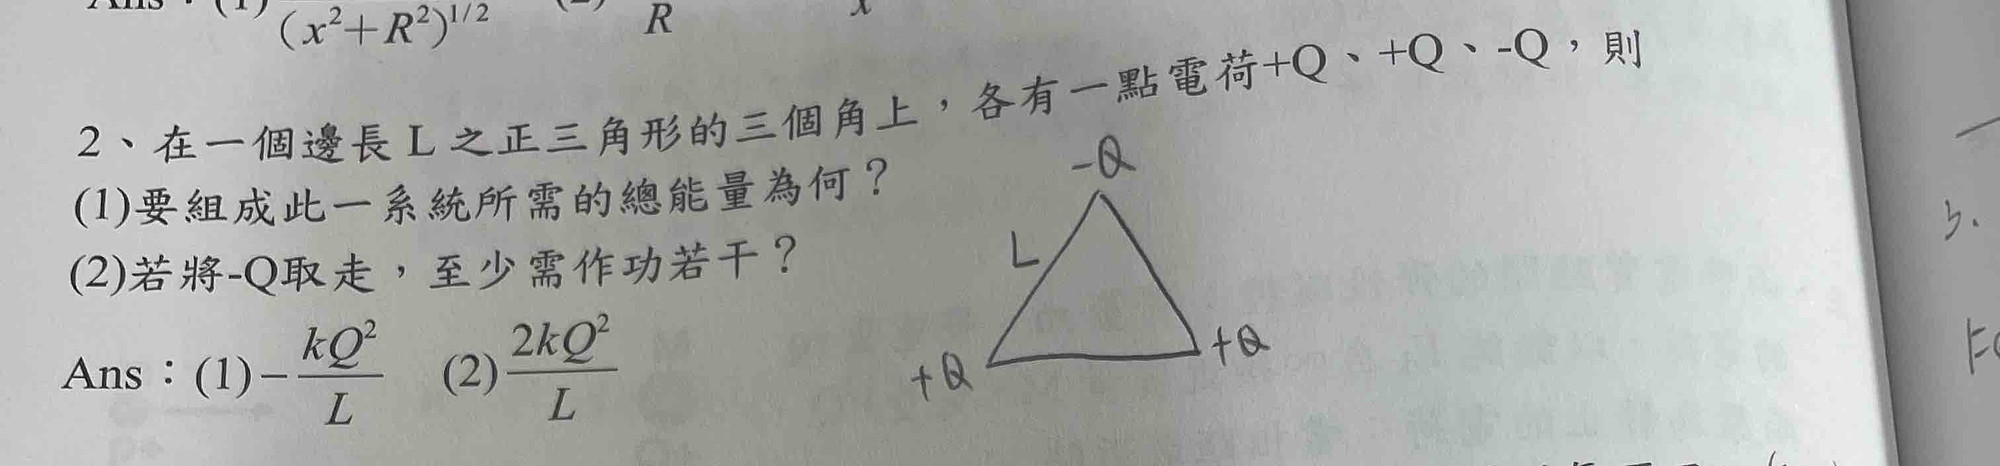 (x²+R²)^{1/2} R x
2、在一個邊長 L 之正三角形的三個角上，各有一點電荷+Q、+Q、-Q，則
(1)要組成此一系統所需的總能量為何？
(2)若將-Q取走，至少需作功若干？
Ans：(1)-\frac{kQ²}{L} (2)\frac{2kQ²}{L}
-Q
L
+Q
+Q